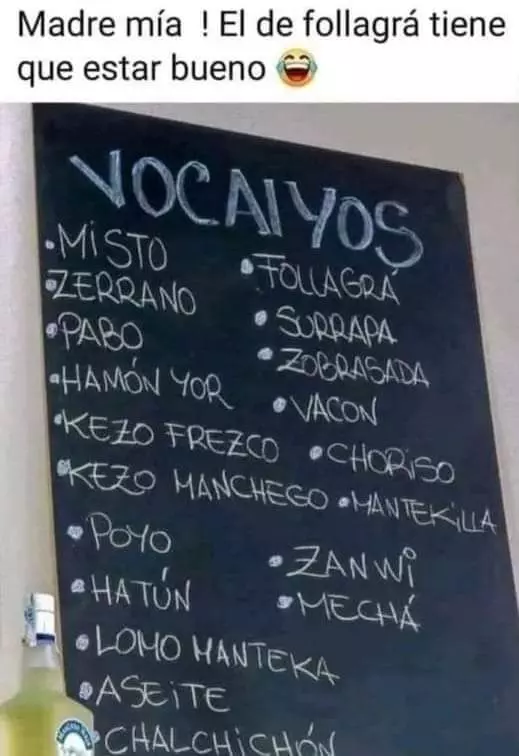 Madre mía ! El de follagrá tiene
que estar bueno 😂
VOCAIYOS
•MiSTO
•ZERRANO
•PABO
•HAMÓN YOR
•KEZO FREZCO
•KEZO MANCHEGO
•POYO
•HATÚN
•LOMO MANTEKA
•ASEITE
•CHALCHiCHÓN
•FOLLAGRÁ
•SURRAPA
•ZOBRASADA
•VACON
•CHORiSO
•MANTEKiLLA
•ZANWi
•MECHÁ